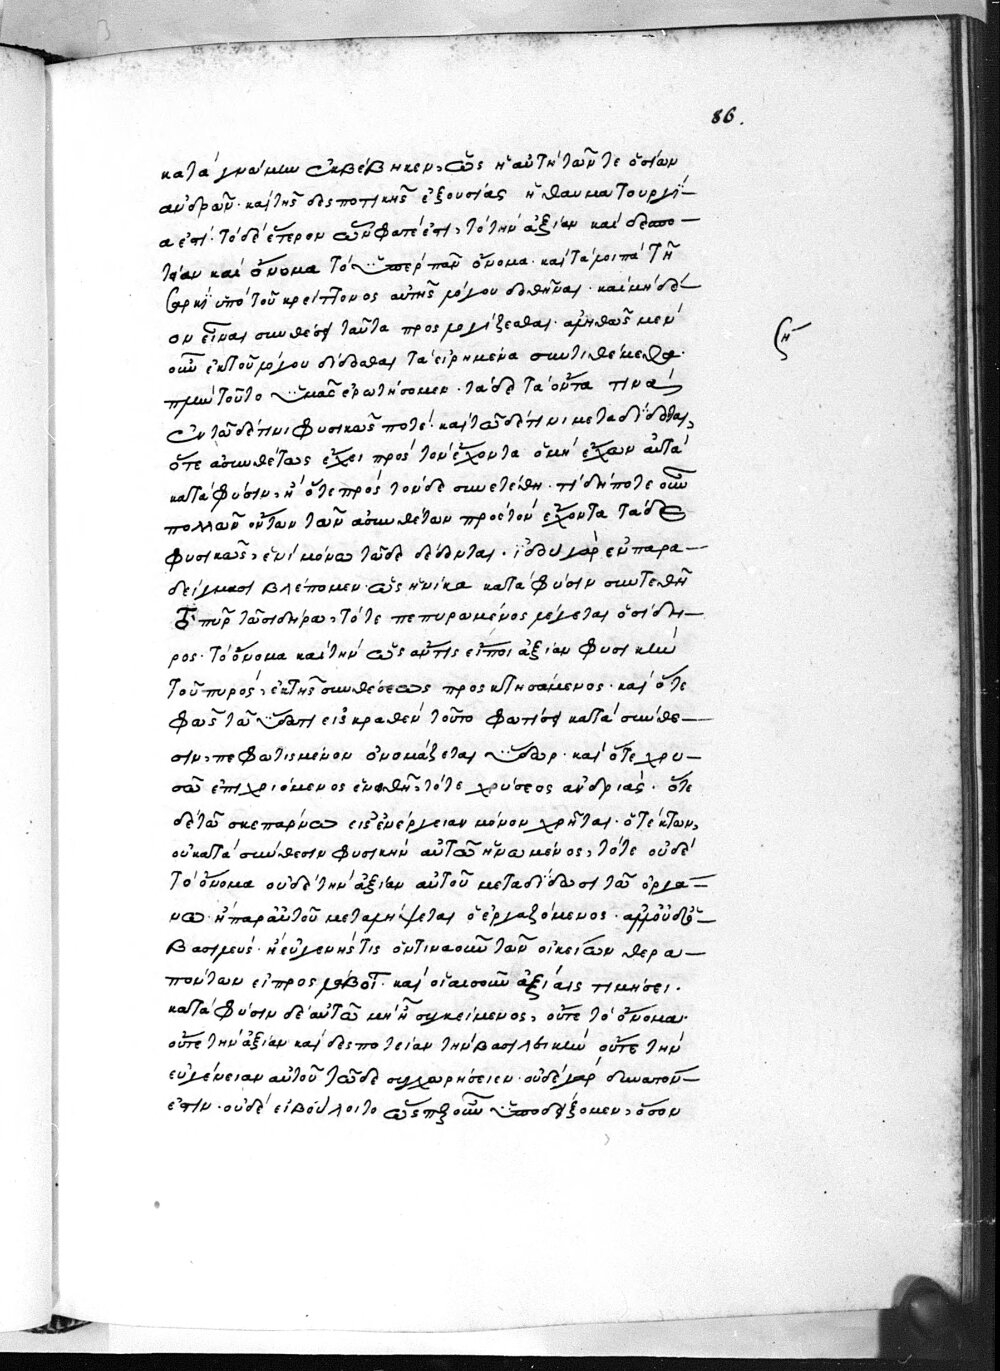 86.
κατὰ γνώμην ἐκβέβηκεν, ὡς ἡ αὐτὴ τῶν τε ὁσίων
ἀνδρῶν· καὶ τῆς δεσποτικῆς ἐξουσίας ἡ θαυματουργί–
α ἐστί· τὸ δὲ ἕτερον ὧν φατέ ἐστι, τὸ τὴν ἀξίαν καὶ δεσπο–
τείαν καὶ ὄνομα τὸ ὑπὲρ πᾶν ὄνομα· καὶ τὰ λοιπὰ τῇ
σαρκὶ ὑπὸ τοῦ κρείττονος αὐτῆς λόγου δοθῆναι· καὶ μὴ δέ–
ον εἶναι συνθέσει ταῦτα προσλογίζεσθαι· ἀληθῶς μὲν
οὖν ἐκ τοῦ λόγου δίδοσθαι τὰ εἰρημένα συντιθέμεθα·
πλὴν τοῦτο ὑμᾶς ἐρωτήσομεν· τάδε τὰ ὄντα τινὰ
ἐν τῷδέ τινι φυσικῶς ποτὲ καὶ τῷδέ τινι μεταδίδοται,
ὅτε ἀσυνθέτως ἔχει πρὸς τὸν ἔχοντα ὁ μὴ ἔχων αὐτὰ
κατὰ φύσιν, ἢ ὅτε πρὸς τόνδε συνετέθη· τί δήποτε οὖν
πολλῶν ὄντων τῶν ἀσυνθέτων πρὸς τὸν ἔχοντα τάδε
φυσικῶς, ἑνὶ μόνῳ τῷδε δέδονται· ἰδοὺ γὰρ ἐν παρα–
δείγμασι βλέπομεν ὡς ἡνίκα κατὰ φύσιν συντεθῇ
τὸ πῦρ τῷ σιδήρῳ, τότε πεπυρωμένος λέγεται ὁ σίδη–
ρος· τὸ ὄνομα καὶ τὴν ὡς ἄν τις εἴποι ἀξίαν φυσικὴν
τοῦ πυρός, ἐκ τῆς συνθέσεως προσκτησάμενος· καὶ ὅτε
φῶς τῷ ὕδατι εἰσκραθὲν τοῦτο φωτίσει κατὰ σύνθε–
σιν, πεφωτισμένον ὀνομάζεται ὕδωρ· καὶ ὅτε χρυ–
σῷ ἐπιχριόμενος ἑνωθῇ, τότε χρύσεος ἀνδριάς· ὅτε
δὲ τῷ σκεπάρνῳ εἰς ἐνέργειαν μόνον χρῆται ὁ τέκτων,
οὐ κατὰ σύνθεσιν φυσικὴν αὐτῷ ἡνωμένος, τότε οὐδὲ
τὸ ὄνομα οὐδὲ τὴν ἀξίαν αὐτοῦ μεταδίδωσι τῷ ὀργά–
νῳ· ἢ παρ' αὐτοῦ μεταλήψεται ὁ ἐργαζόμενος· ἀλλ' οὐδὲ ὁ
βασιλεύς· ἢ εὐγενής τις ὁντιναοῦν τῶν οἰκείων θερα–
πόντων εἰ καὶ οἵαισοῦν ἀξίαις τιμήσει·
κατὰ φύσιν δὲ αὐτῷ μὴ ᾖ συγκείμενος, οὔτε τὸ ὄνομα
οὔτε τὴν ἀξίαν καὶ δεσποτείαν τὴν βασιλικὴν οὔτε τὴν
εὐγένειαν αὐτοῦ τῷδε συγχωρήσειεν· οὐδὲ γὰρ δυνατόν–
ἐστιν· οὐδὲ εἰ βούλοιτο ὥσπερ οὖν ὑποδείξομεν, ὅσον